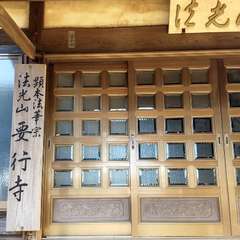 法光山
顕本法華宗
法光山 要行寺